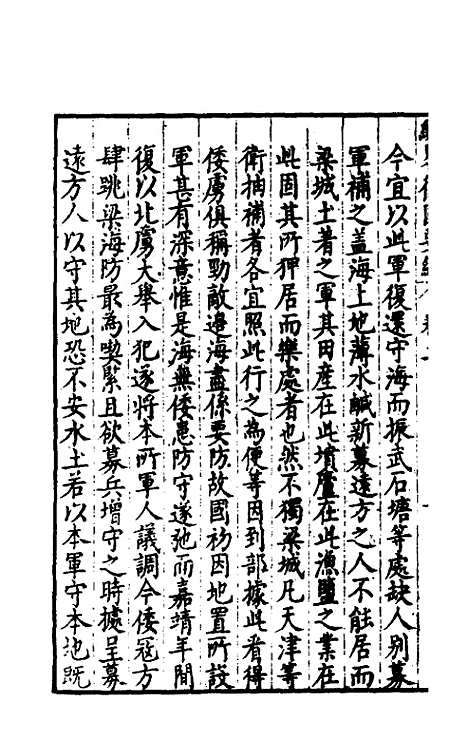 今宜以此軍復還守海而振武石塘等處缺人别募
軍補之盖海上地薄水鹹新募遠方之人不能居而
梁城土著之軍其田産在此墳廬在此漁鹽之業在
此固其所狎居而樂處者也然不獨梁城凡天津等
衛抽補者各宜照此行之為便等因到部據此看得
倭虜俱稱勁敵邉海盡係要防故國初因地置所設
軍甚有深意惟是海無倭患防守遂弛而嘉靖年間
復以北虜大舉入犯遂將本所軍人議調今倭冦方
肆跳梁海防最為喫緊且欲募兵增守之時據呈募
遠方人以守其地恐不安水土若以本軍守本地既